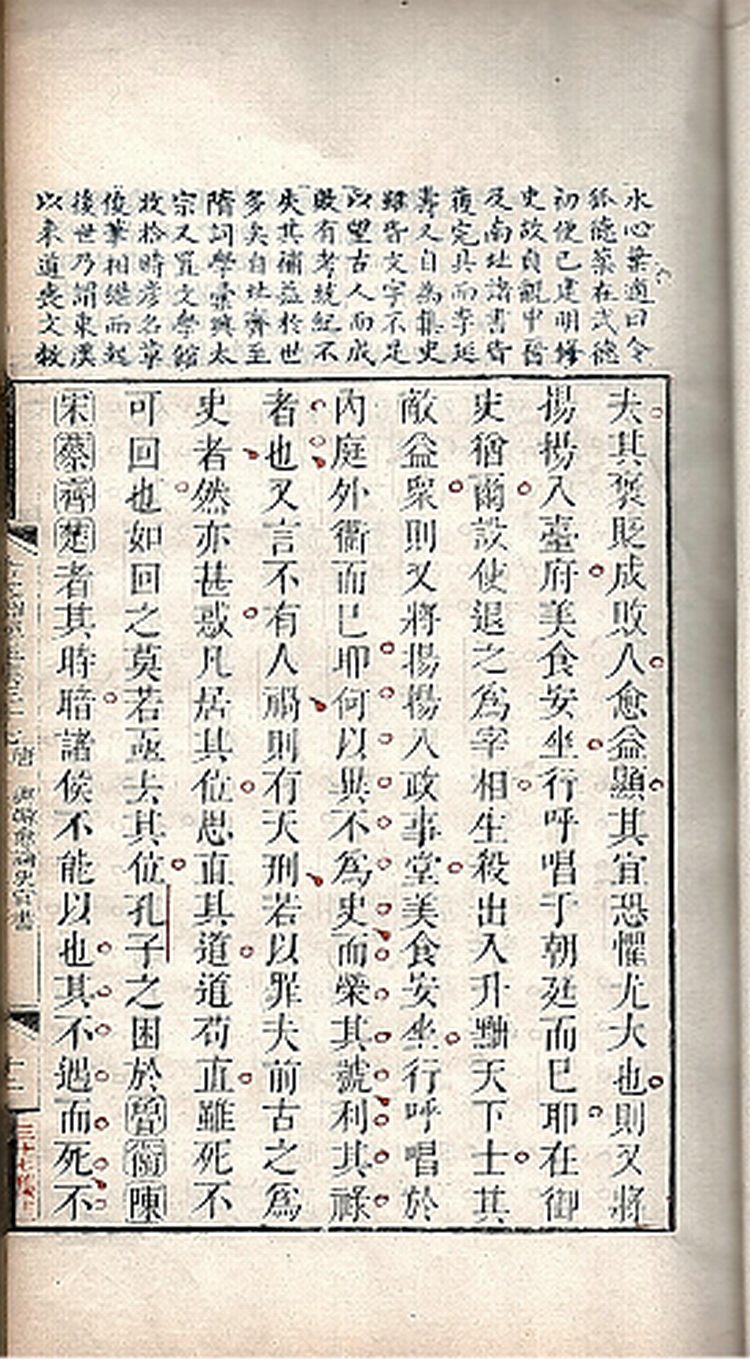 水心葉適曰令
狐德棻在武德
初便已建明修
史故貞觀中晉
及南北諸書皆
復完具而李延
壽又自為集史
雖昔文字不足
以望古人而成
敗有考統紀不
失其補益於世
多矣自北齊至
隋詞學彙興太
宗又置文學館
收拾時彥名草
俊筆相繼而起
後世乃謂東漢
以來道喪文敝
夫其褒貶成敗人愈益顯其宜恐懼尤大也則又將
揚揚入臺府美食安坐行呼唱于朝廷而已耶在御
史猶爾設使退之為宰相生殺出入升黜天下士其
敵益眾則又將揚揚入政事堂美食安坐行呼唱於
內庭外衢而已耶何以異不為史而榮其號利其祿
者也又言不有人禍則有天刑若以罪夫前古之為
史者然亦甚惑凡居其位思直其道道苟直雖死不
可回也如回之莫若亟去其位孔子之困於魯衛陳
宋蔡齊楚者其時暗諸侯不能以也其不遇而死不
唐 與韓愈論史官書